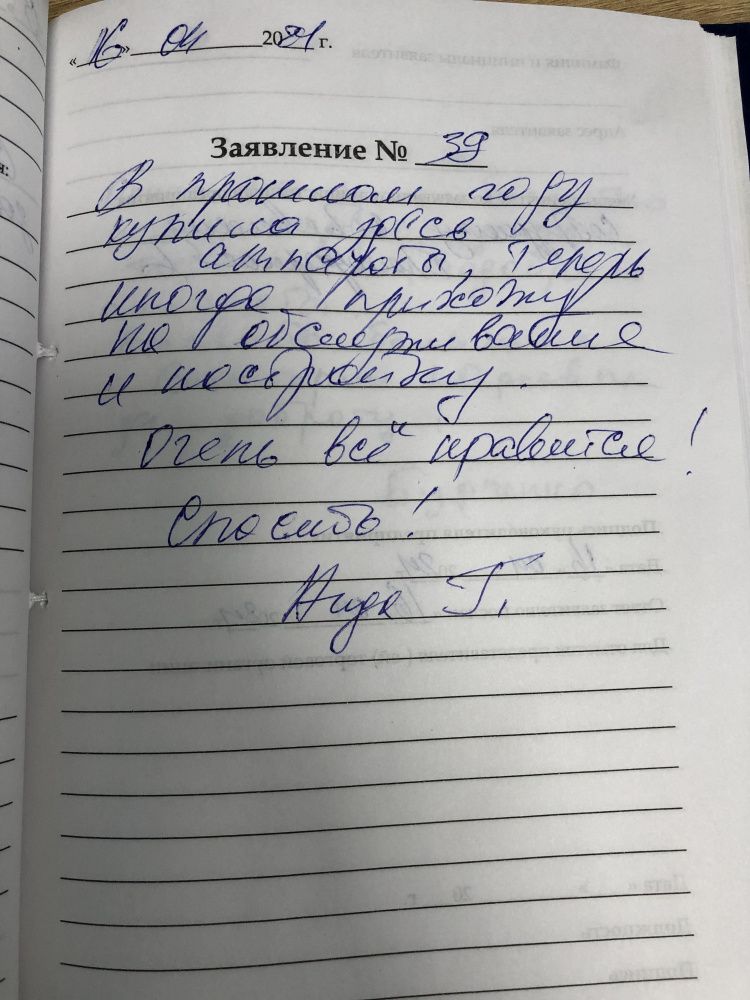 «16» 04 2021 г.
Заявление № 39
В прошлом году
купила здесь
аппараты. Теперь
иногда прихожу
на обслуживание
и настройку.
Очень всё нравится!
Спасибо!
Аида Г.